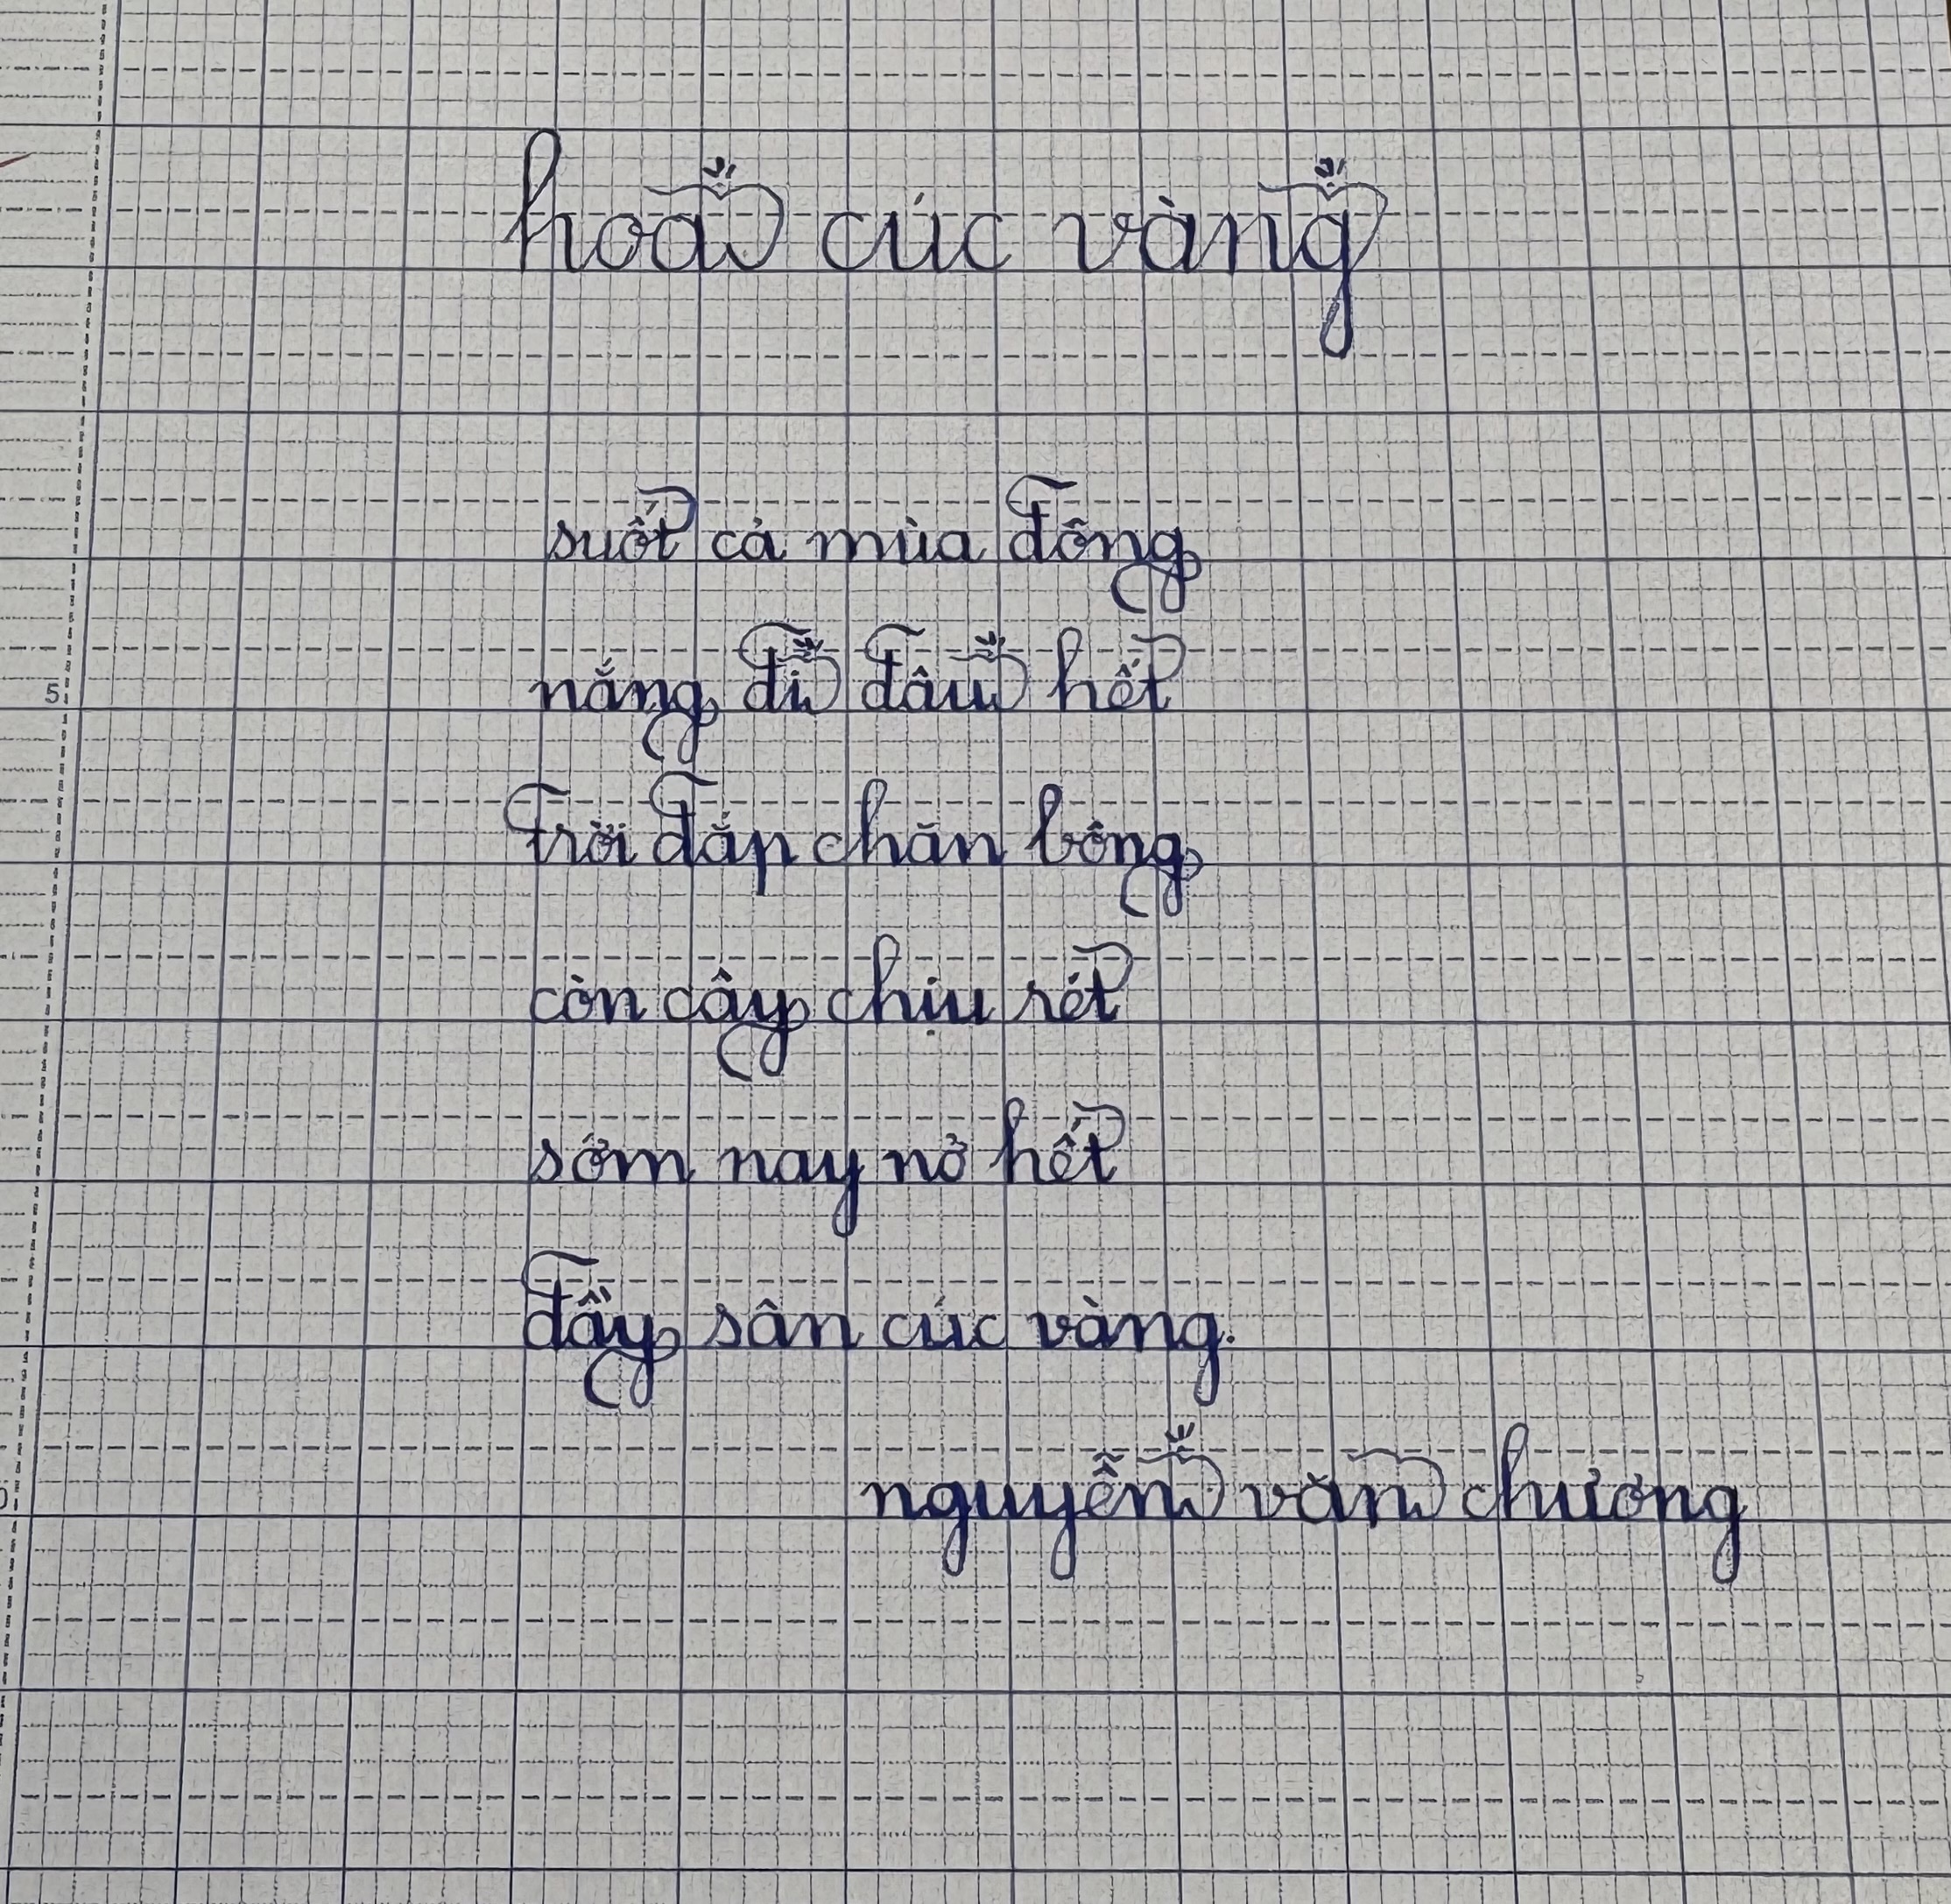 hoa cúc vàng
suốt cả mùa đông
nắng đi đâu hết
trời đắp chăn bông
còn cây chịu rét
sớm nay nở hết
đầy sân cúc vàng.
nguyễn văn chương
5